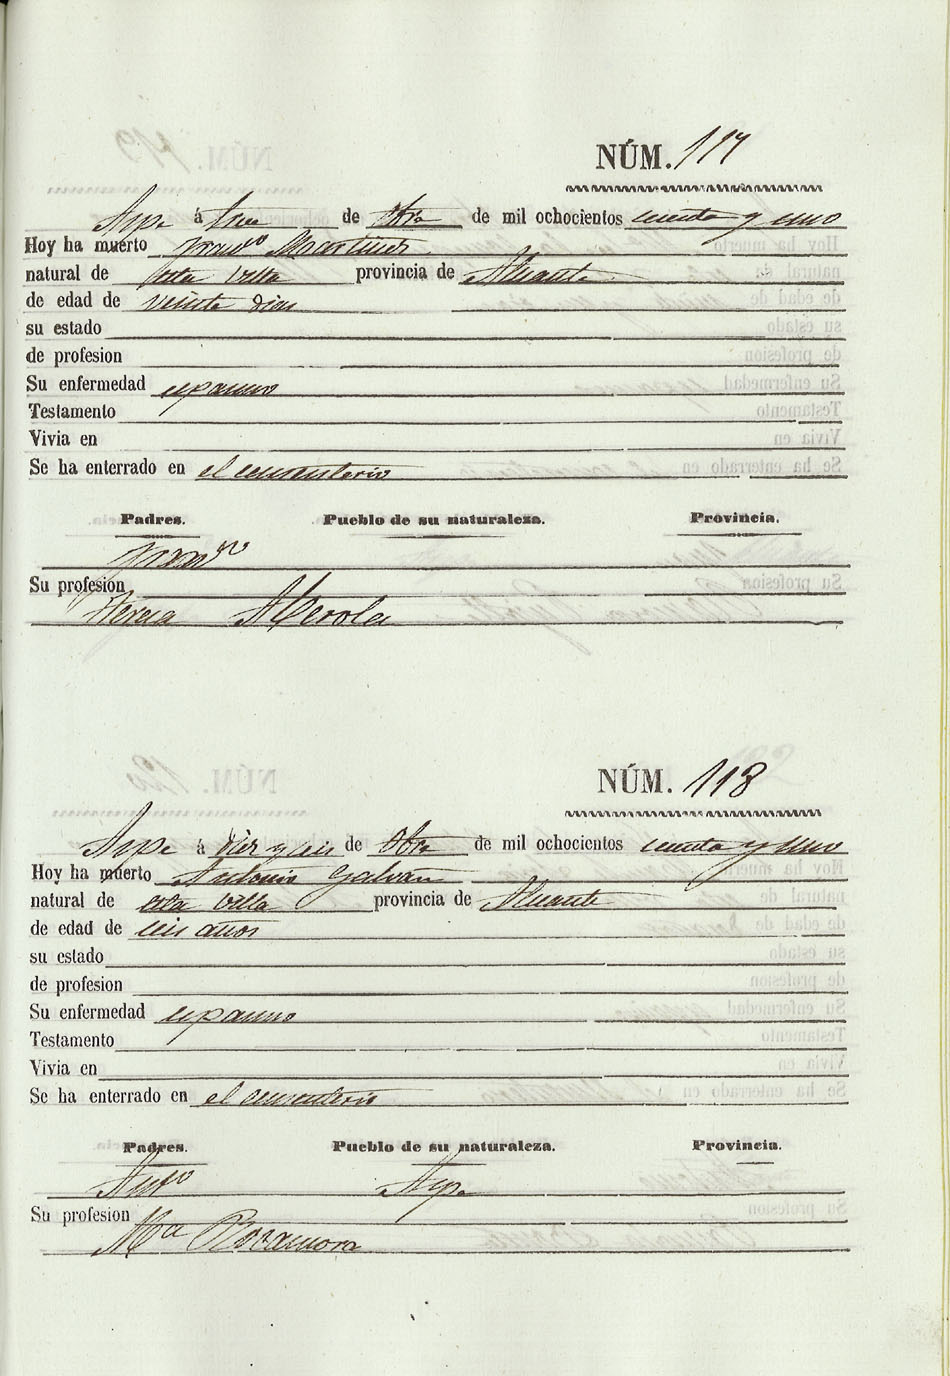 NÚM. 117
Aspe á trece de Obre de mil ochocientos cincuenta y uno
Hoy ha muerto Franco Martinez
natural de esta villa provincia de Alicante
de edad de veinte dias
su estado
de profesion
Su enfermedad espasmo
Testamento
Vivia en
Se ha enterrado en el cementerio
Padres. Pueblo de su naturaleza. Provincia.
Franco
Su profesion
Teresa Alberola
NÚM. 118
Aspe á diez y seis de Obre de mil ochocientos cincuenta y uno
Hoy ha muerto Antonio Galvañ
natural de esta villa provincia de Alicante
de edad de seis años
su estado
de profesion
Su enfermedad espasmo
Testamento
Vivia en
Se ha enterrado en el cementerio
Padres. Pueblo de su naturaleza. Provincia.
Anto Aspe
Su profesion
Ma Rocamora